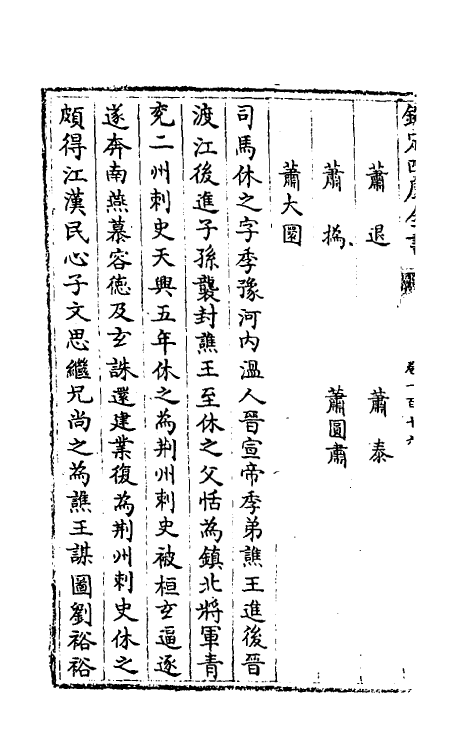 欽定四庫全書
卷一百七十六
蕭退 蕭泰
蕭撝 蕭圓肅
蕭大圜
司馬休之字季豫河內溫人晉宣帝季弟譙王進後晉
渡江後進子孫襲封譙王至休之父恬為鎮北將軍青
兖二州刺史天興五年休之為荆州刺史被桓玄逼逐
遂奔南燕慕容德及玄誅還建業復為荆州刺史休之
頗得江漢民心子文思繼兄尚之為譙王謀圖劉裕裕